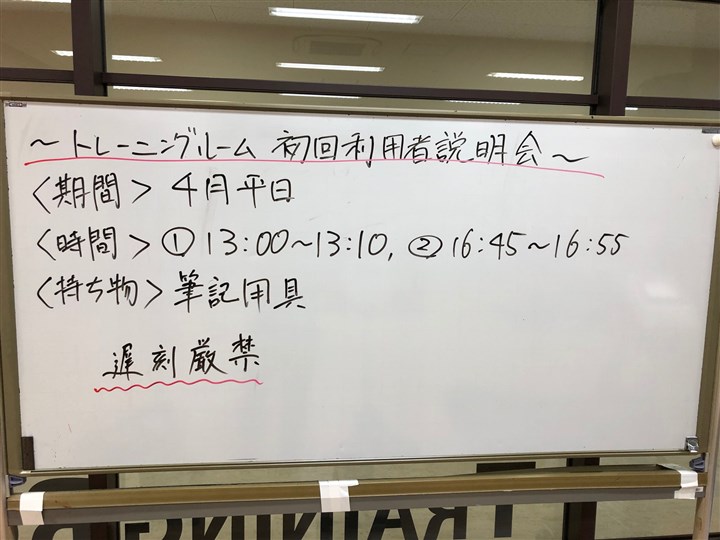 ～トレーニングルーム 初回利用者説明会～
〈期間〉 4月平日
〈時間〉 ① 13:00～13:10, ② 16:45～16:55
〈持ち物〉 筆記用具
遅刻厳禁
TRAINING R